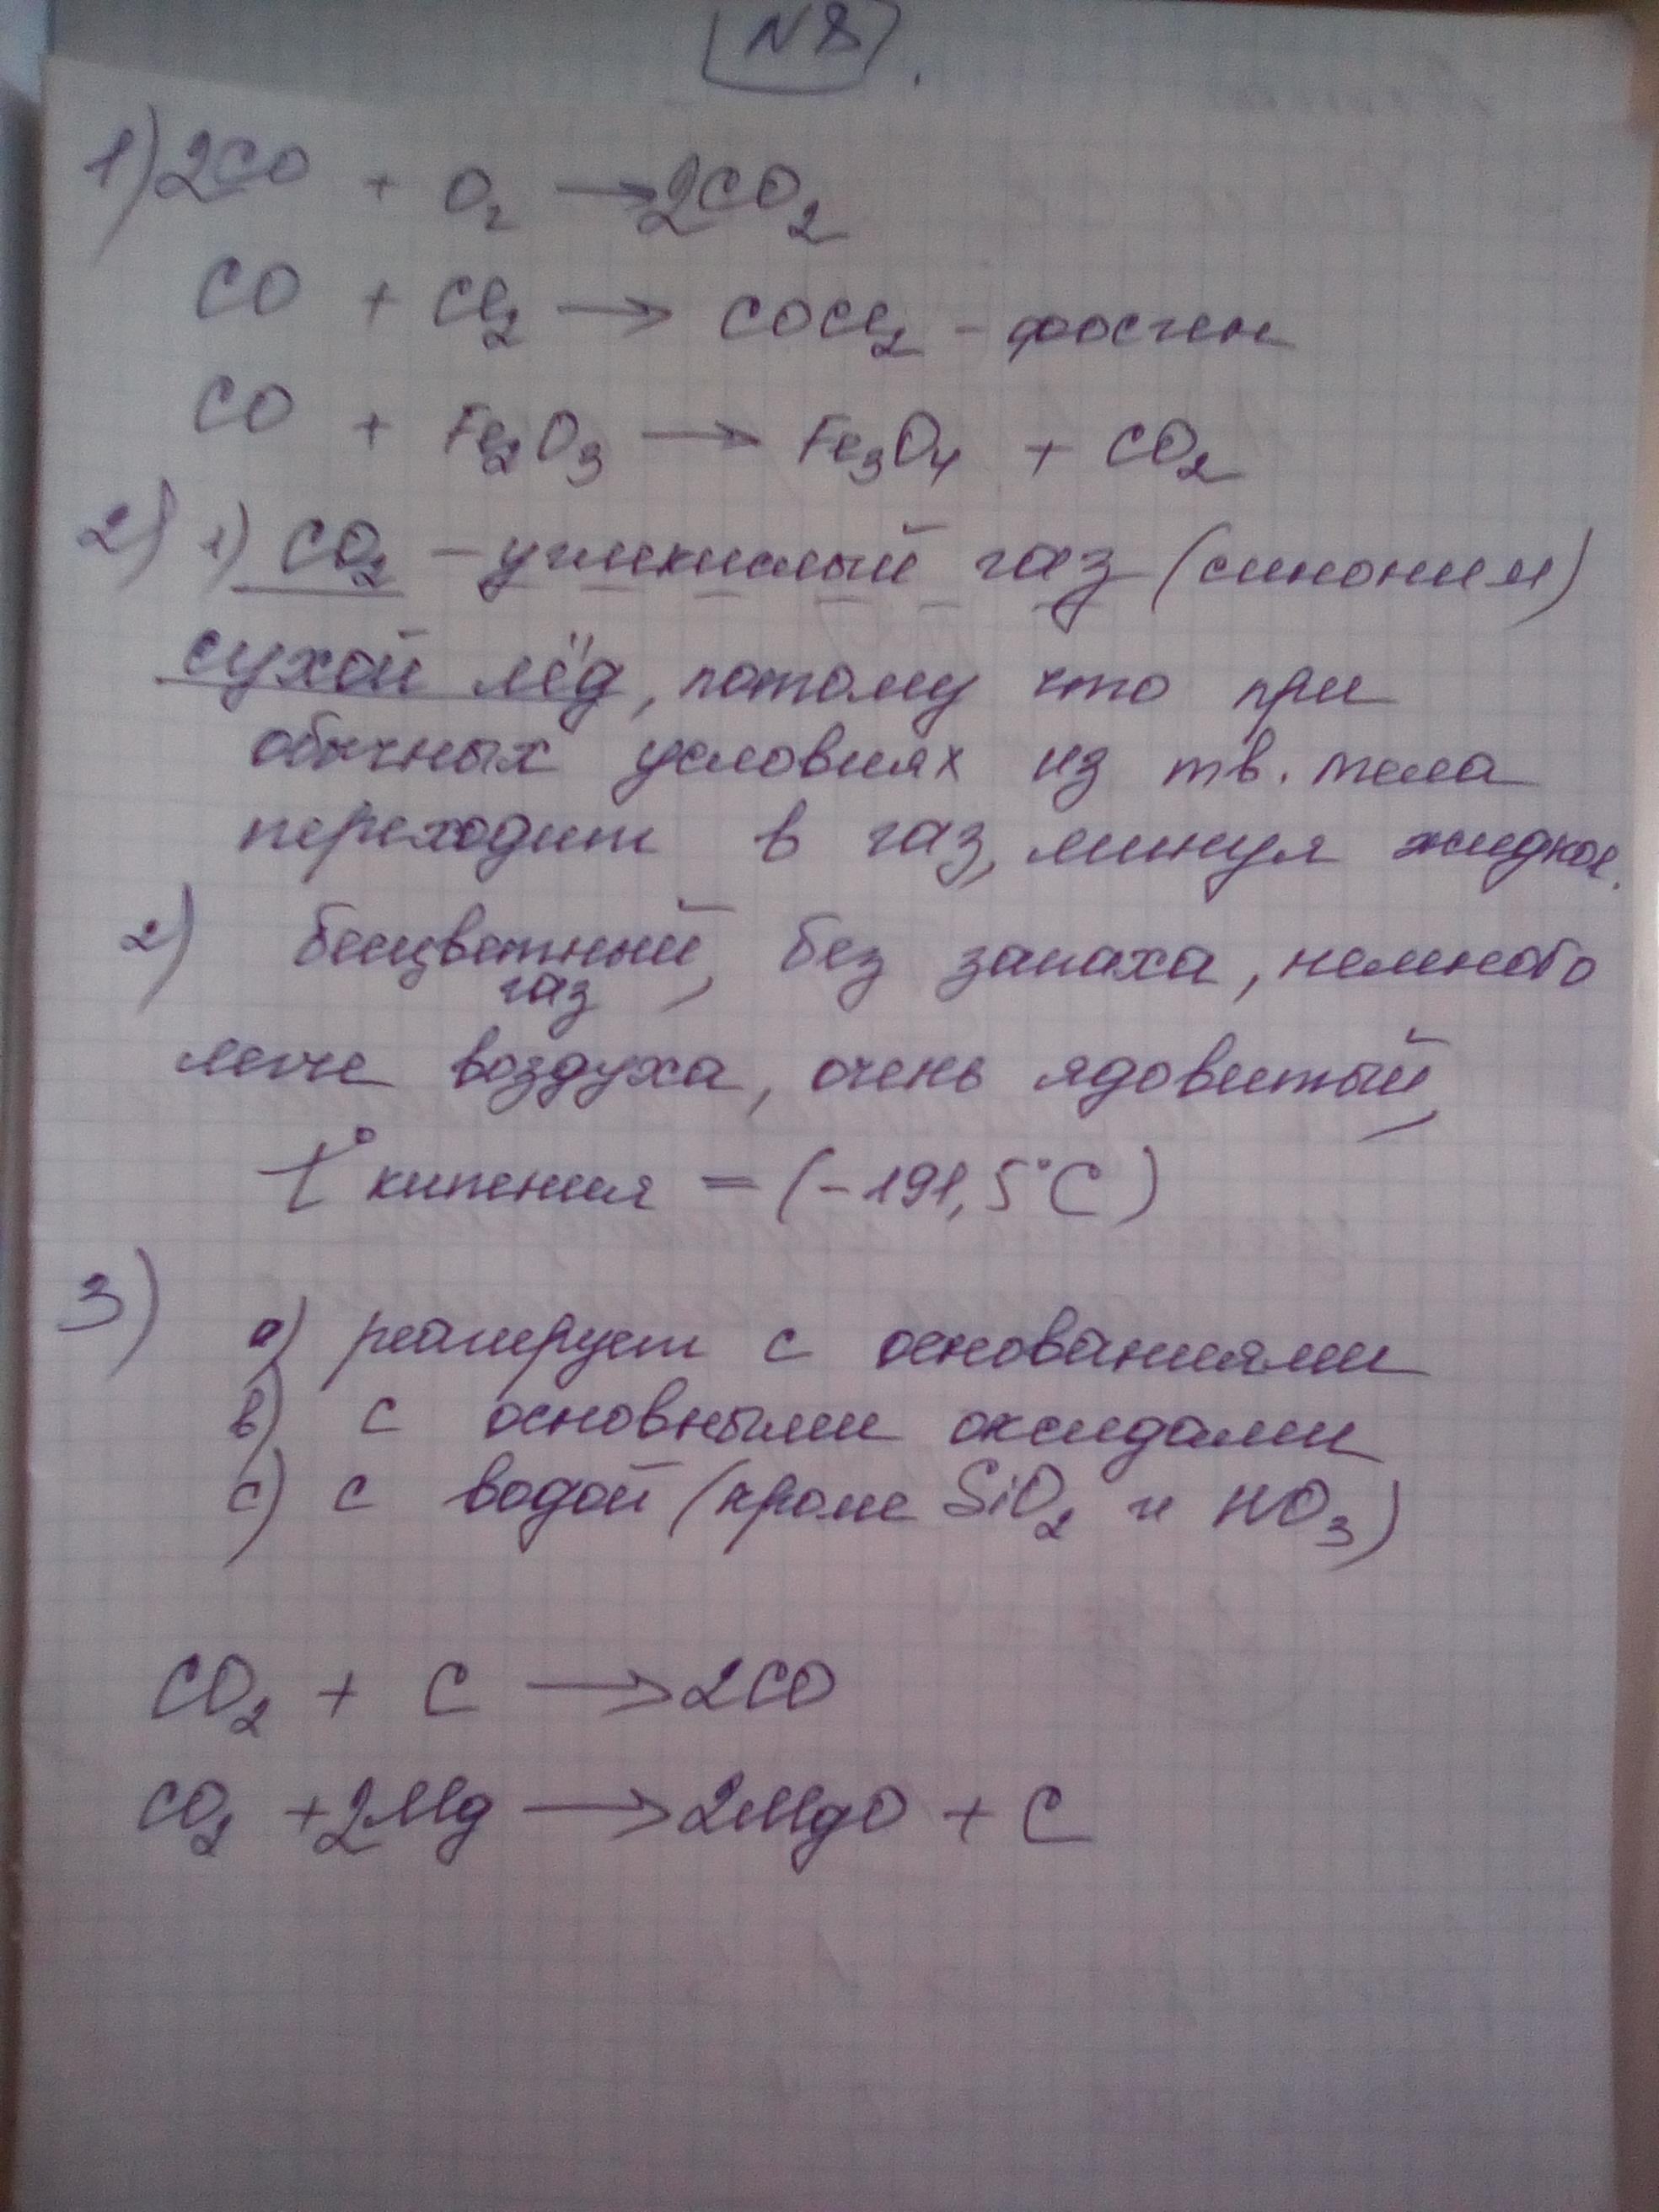 N8.
1) 2CO + O₂ → 2CO₂
CO + Cl₂ → COCl₂ - фосген
CO + Fe₂O₃ → Fe₃O₄ + CO₂
2) 1) CO₂ - углекислый газ (синоним)
сухой лёд, потому что при
обычных условиях из тв. тела
переходит в газ, минуя жидкое.
2) бесцветный газ, без запаха, немного
легче воздуха, очень ядовитый,
t° кипения = (-191,5°C)
3) a) реагирует с основаниями
b) с основными оксидами
c) с водой (кроме SiO₂ и NO₃)
CO₂ + C → 2CO
CO₂ + 2Mg → 2MgO + C